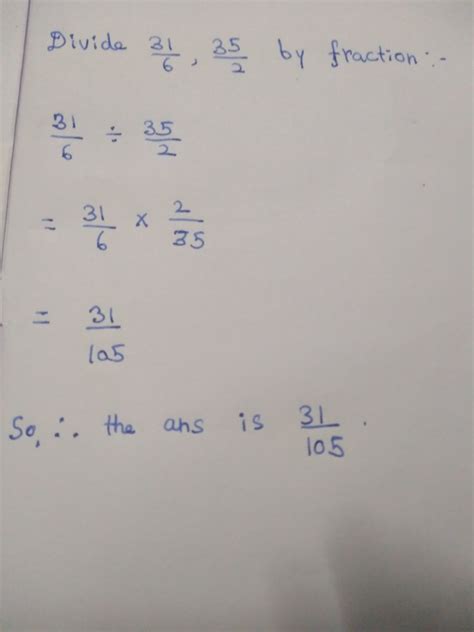 Divide 31/6, 35/2 by fraction:-
31/6 ÷ 35/2
= 31/6 x 2/35
= 31/105
So, ∴ the ans is 31/105.